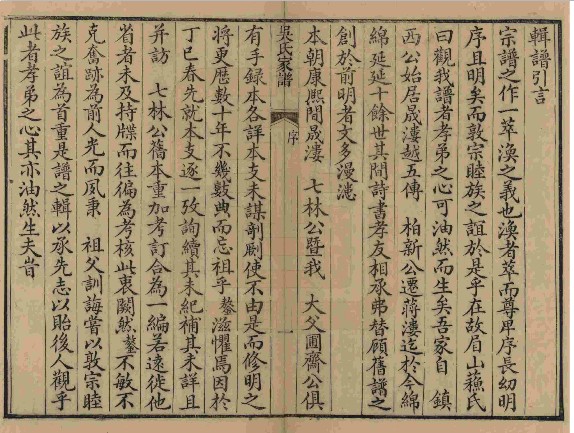 輯譜引言
宗譜之作一萃渙之義也渙者萃而尊卑序長幼明
序且明矣而敦宗睦族之誼於是乎在故眉山蘓氏
曰觀我譜者孝弟之心可油然而生矣吾家自 鎮
西公始居晟漊越五傳 柏新公遷蔣漊迄於今綿
綿延延十餘世其間詩書孝友相承弗替顧舊譜之
創於前明者文多漫漶
本朝康熙間晟漊 七林公暨我 大父圃齋公俱
吳氏家譜 序 一
有手録本各詳本支未謀剞劂使不由是而修明之
將更歷數十年不幾數典而忘祖乎 鏊滋懼焉因於
丁巳春先就本支逐一攷詢續其未紀補其未詳且
并訪 七林公舊本重加考訂合為一編若遠徙他
省者未及持牒而往徧為考核此衷闕然鏊不敏不
克奮跡為前人光而夙秉 祖父訓誨嘗以敦宗睦
族之誼為首重是譜之輯以承先志以貽後人觀乎
此者孝弟之心其亦油然生夫旹